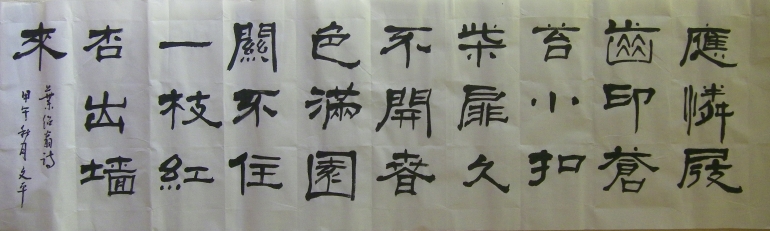 應憐屐
齒印蒼
苔小扣
柴扉久
不開春
色滿園
關不住
一枝紅
杏出墙
來
葉紹翁詩
甲午秋月文平